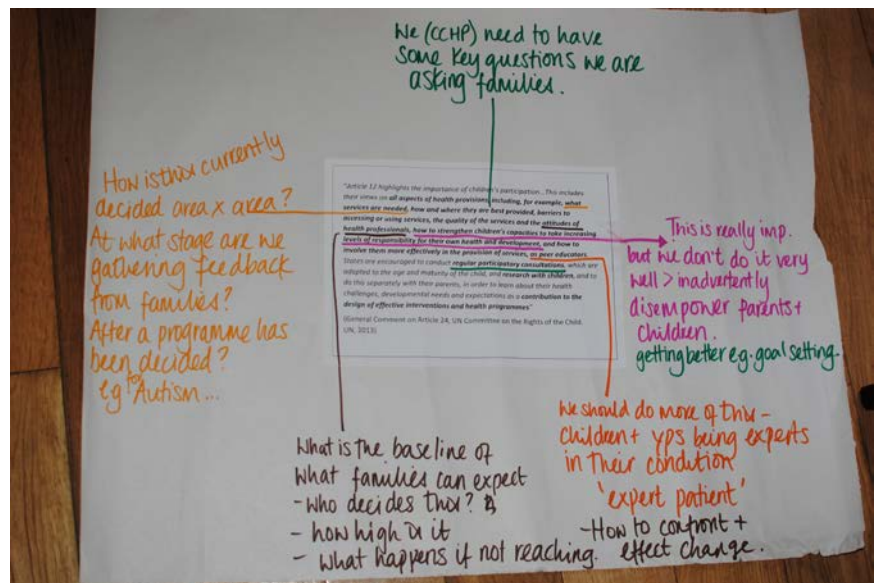 We (CCHP) need to have
some key questions we are
asking families.
How is this currently
decided area x area?
At what stage are we
gathering feedback
from families?
After a programme has
been decided?
eg for Autism...
"Article 12 highlights the importance of children's participation . This includes
their views on all aspects of health provisions, including, for example, what
services are needed, how and where they are best provided, barriers to
accessing or using services, the quality of the services and the attitudes of
health professionals, how to strengthen children's capacities to take increasing
levels of responsibility for their own health and development, and how to
involve them more effectively in the provision of services, as peer educators.
States are encouraged to conduct regular participatory consultations, which are
adapted to the age and maturity of the child, and research with children, and to
do this separately with their parents, in order to learn about their health
challenges, developmental needs and expectations as a contribution to the
design of effective interventions and health programmes"
(General Comment on Article 24, UN Committee on the Rights of the Child.
UN, 2013)
This is really imp.
but we don't do it very
well > inadvertently
disempower parents +
children.
getting better eg. goal setting.
What is the baseline of
what families can expect
- who decides this?
- how high is it
- what happens if not reaching.
We should do more of this -
children + yps being experts
in their condition
'expert patient'
- How to confront +
effect change.